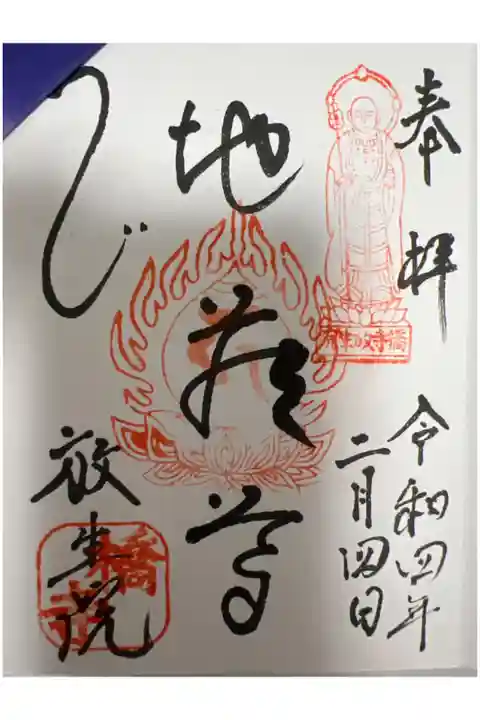 奉拝
令和四年
二月四日
橋寺放生院
地蔵尊
うじ
放生院
橋寺